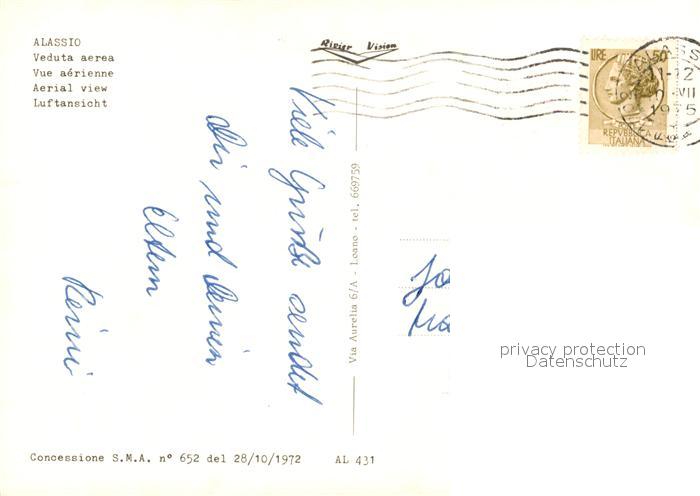 ALASSIO
Veduta aerea
Vue aérienne
Aerial view
Luftansicht
Rivier Vision
LIRE 50
REPVBBLICA
ITALIANA
11-12
VII
1975
Viele Grüße sendet
Dir und Deinen
Eltern
Via Aurelia 6/A - Loano - tel. 669759
privacy protection
Datenschutz
Concessione S.M.A. n° 652 del 28/10/1972
AL 431